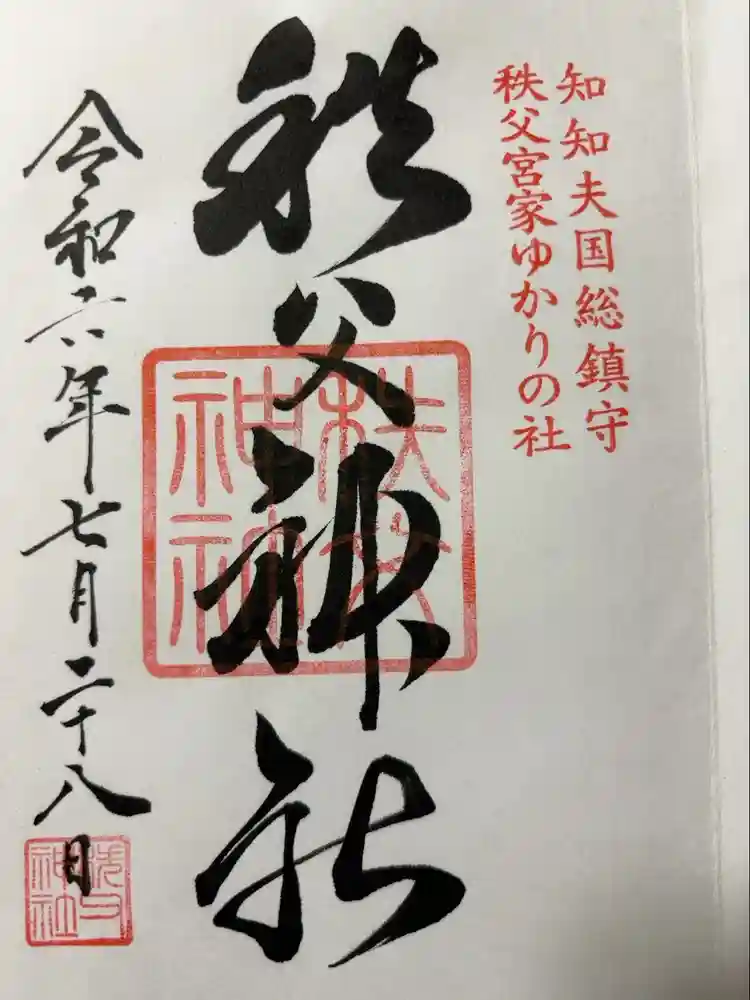 知知夫国総鎮守
秩父宮家ゆかりの社
秩父神社
秩父神社
令和六年七月二十八日
秩父神社